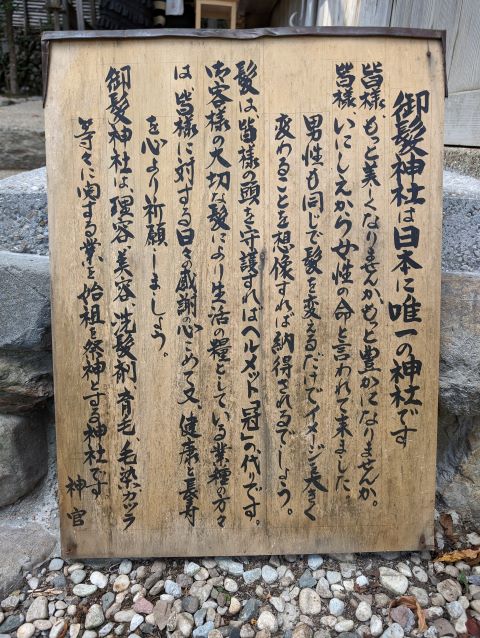 御髪神社は日本に唯一の神社です
皆様、もっと美くなりませんか、もっと豊かになりませんか。
皆様、いにしえから女性の命と言われて来ました。
男性も同じで髪を変えるだけでイメージを大きく
変わることを想像すれば納得されるでしょう。
髪は、皆様の頭を守護すればヘルメット「冠」の代りです。
お客様の大切な髪により生活の糧としている業種の方々
は皆様に対する日々感謝心こめて又、健康と長寿
を心より祈願しましょう。
御髪神社は、理容、美容、洗髪剤、育毛、毛染、ガツラ
等々に関する業を始祖を祭神とする神社です。
神官